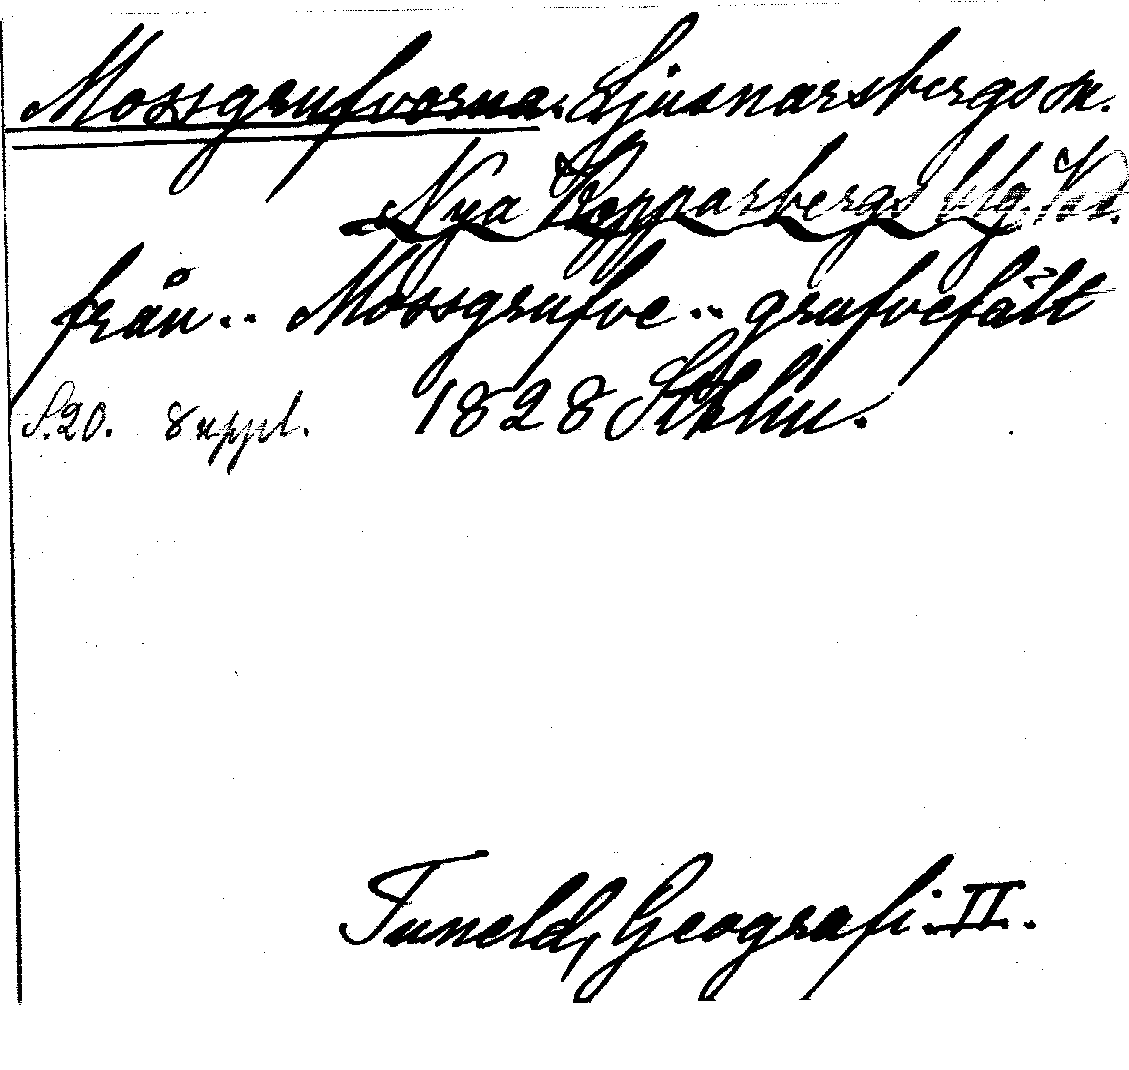 Mossgrufvorna. Ljusnarsbergs sn.
Nya Kopparbergs blg. Vstm.
från.. Mossgrufve.. grufvefält
S.20. 8 uppl. 1828 Sthlm.
Tuneld, Geografi. II.